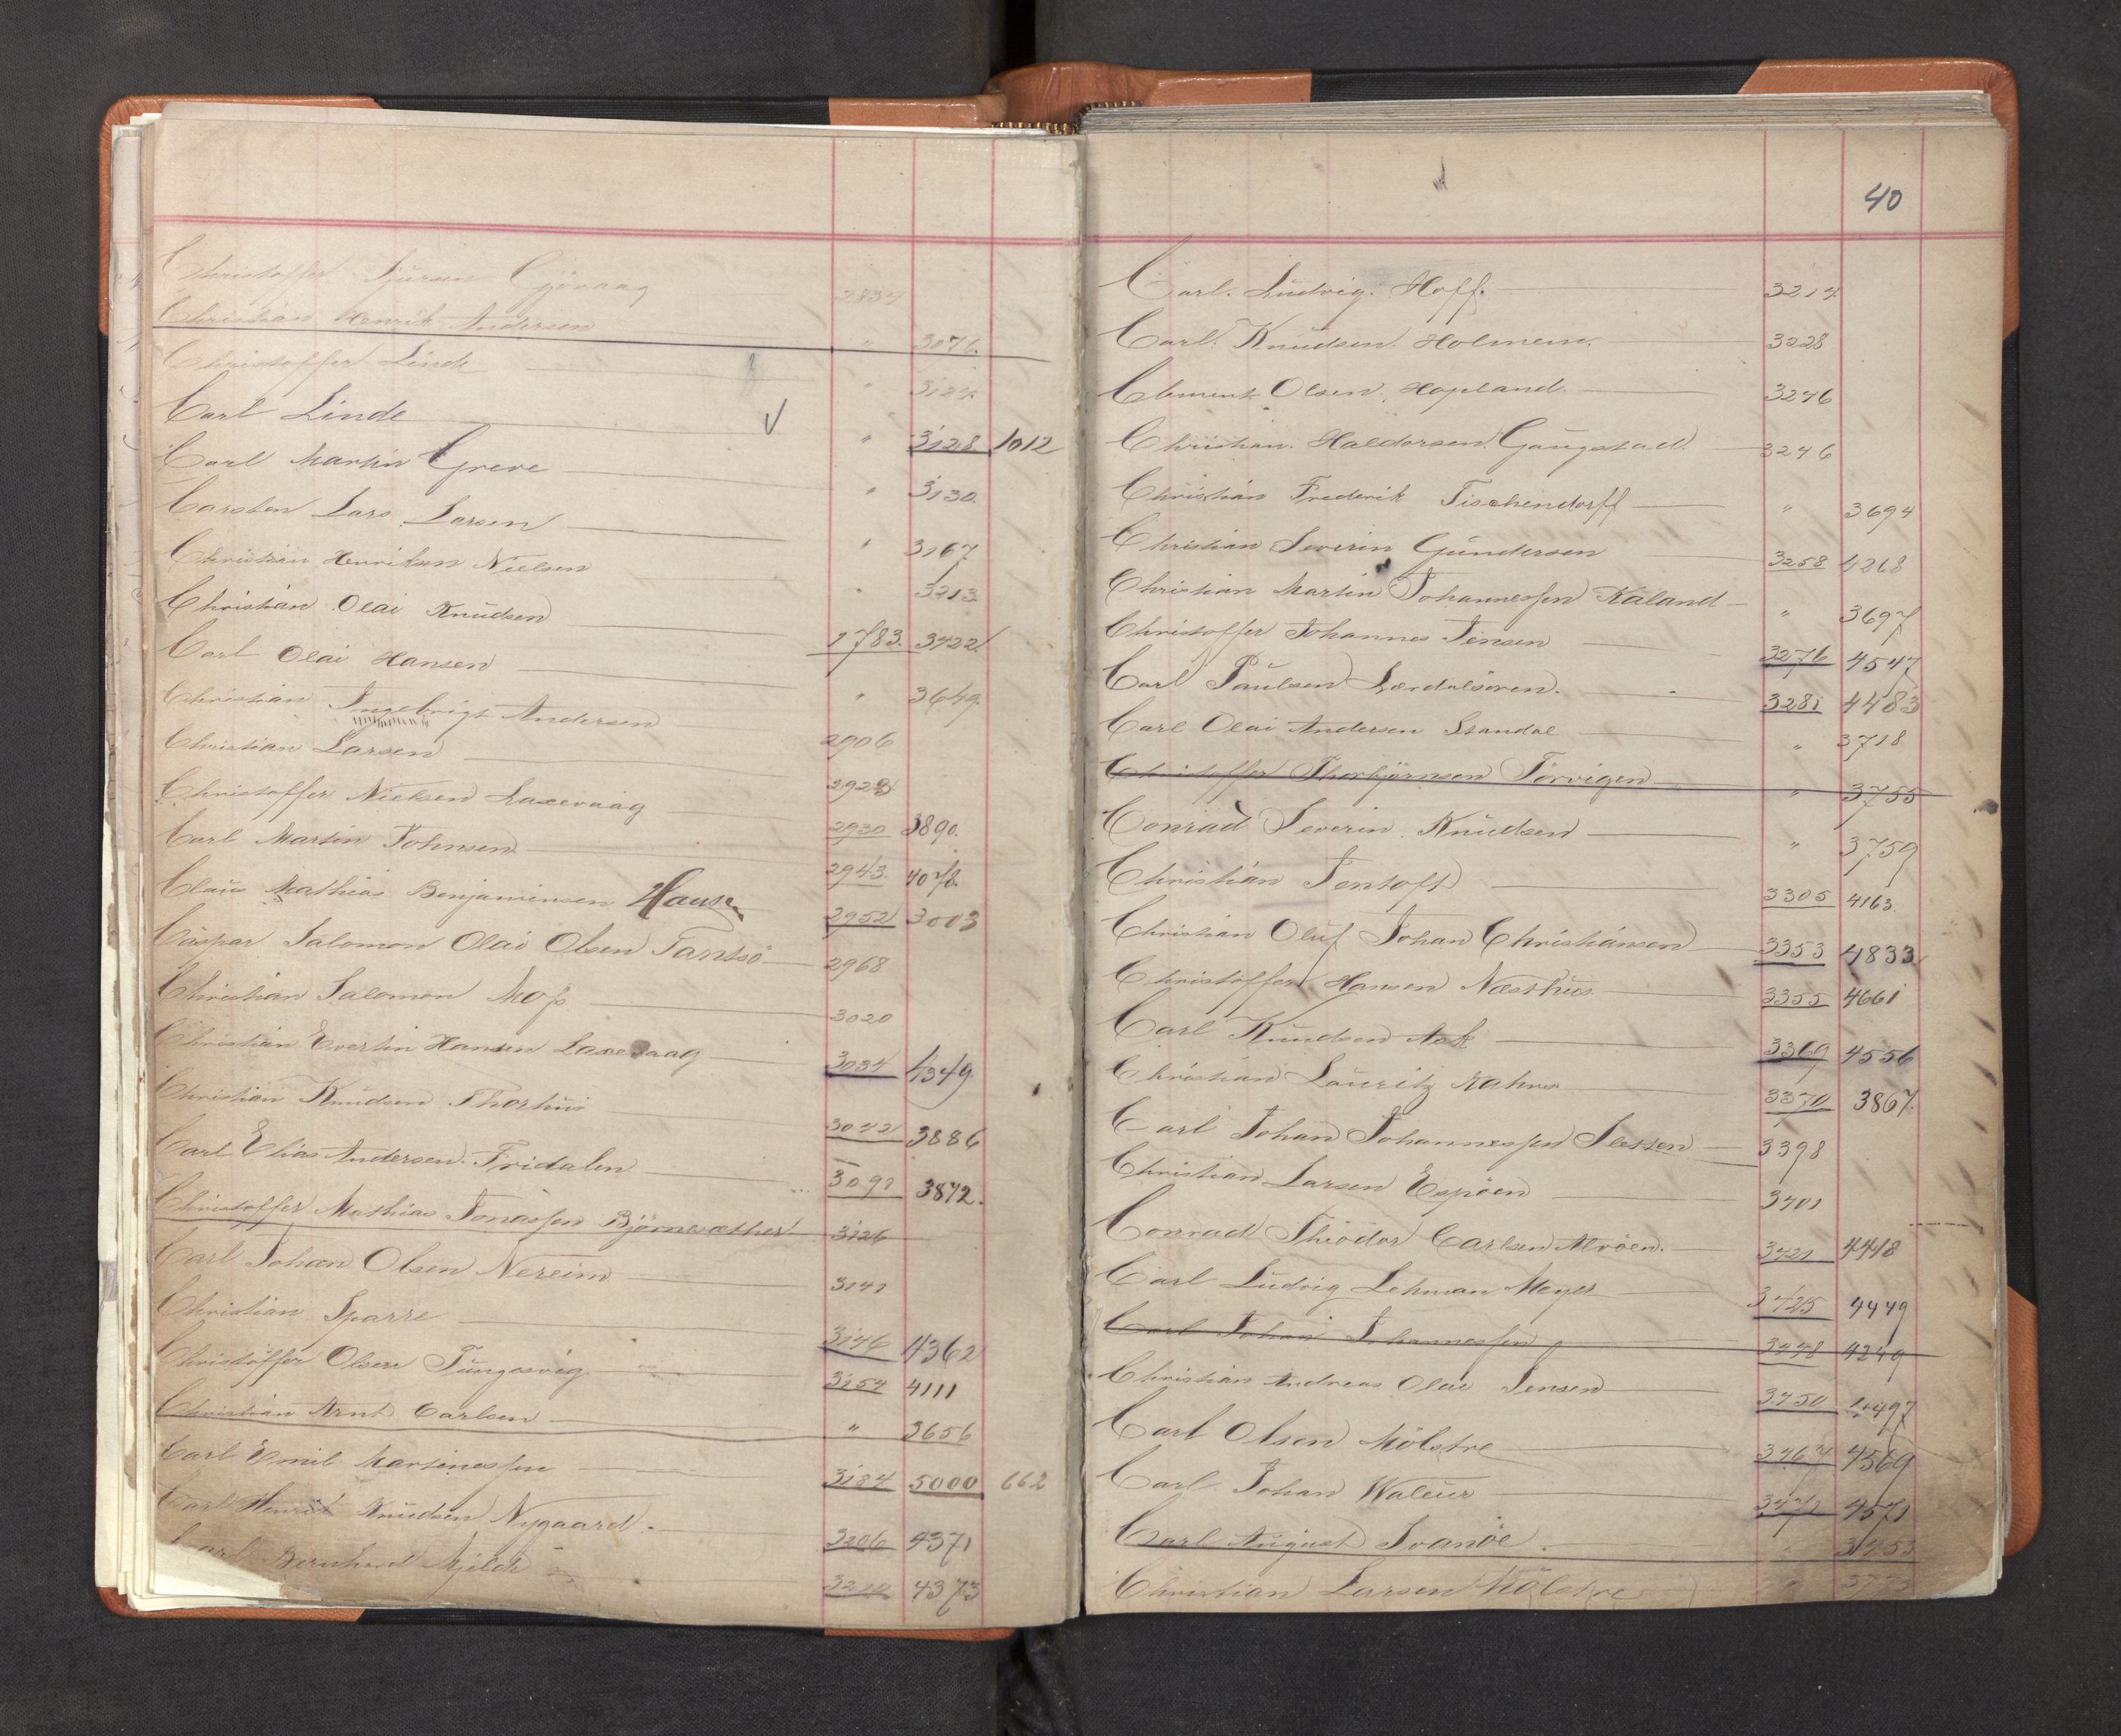 Christoffer Sjursen Gjövaag 2834
Christian Henrik Andersen " 3076.
Christoffer Linde " 3124
Carl Linde V " 3128 1012
Carl Martin Greve " 3130.
Carsten Lars Larsen " 3167
Christian Henriksen Nielsen " 3213
Christian Olai Knudsen 1783. 3422
Carl Olai Hansen " 3649.
Christian Ingebrigt Andersen 2906
Christian Larsen 2928
Christoffer Nielsen Laxevaag 2930 3890.
Carl Martin Johnsen 2943. 4078.
Claus Mathias Benjaminsen Hansen 2952 3003
Caspar Salomon Olai Olsen 2968
Christian Salomon Moss 3020
Christian Evertin Hansen Laxevaag 3034 4349.
Christian Knudsen Thorhus 3042 3886
Carl Elias Andersen Fridalen 3091 3872.
Christoffer Mathias Jonassen Björnesæther 3126
Carl Johan Olsen Nereim 3141
Christian Sparre 3146 4362
Christoffer Olsen Tungesvig 3154 4111
Christian Arnt Carlsen " 3656
Carl Emil Martinessen 3184 5000 662
Carl Henrik Knudsen Nygaard. 3206 4371
Carl Bernhard Mjelde 4373
40
Carl. Ludvig. Hoff. 3214
Carl. Knudsen Holmen. 3228
Clement Olsen Hopland. 3246
Christian. Haldorsen Gaugstad. 3246
Christian Frederik Tischendorff " 3694
Christian Severin Gundersen 3258 4268
Christian Martin Johannessen Kaland " 3697
Christoffer Johannes Jensen 3276 4547
Carl Paulsen Lærdalsören. 3281 4483
Carl Olai Andersen Standal " 3718
Christoffer Thorbjörnsen Törvigen " 3755
Conrad Severin Knudsen " 3759
Christian Jentoft 3305 4163.
Christian Oluf Johan Christiansen 3353 4833
Christoffer Hansen Næsthus 3355 4661
Carl Knudsen Ask 3369 4556
Christian Lauritz Rahrs 3370 3867.
Carl Johan Johannessen Slessen 3398
Christian Larsen Espöen 3401
Conrad Theodor Carlsen Alvöen. 3421 4418
Carl Ludvig Lehman Meyer 3425 4449
Carl Johan Johannessen 3448 4249
Christian Andreas Olai Jensen 3450 4497
Carl Olsen Mölstre 3467 4569
Carl Johan Waleur 3472 4571
Carl August Svanöe. " 3453
Christian Larsen Mölstre "